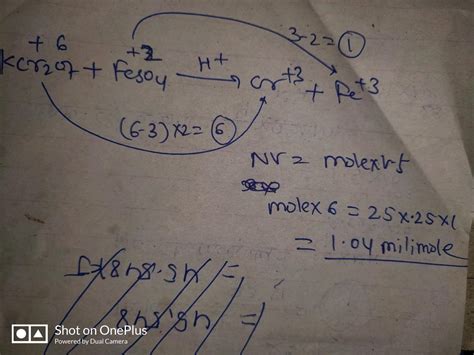 3-2=1
+6 +2
KCr2O7 + FeSO4 H+ → Cr+3 + Fe+3
(6-3)×2=6
NV = mole×v.f
mole×6 = 25×.25×1
= 1.04 milimole
Shot on OnePlus
Powered by Dual Camera